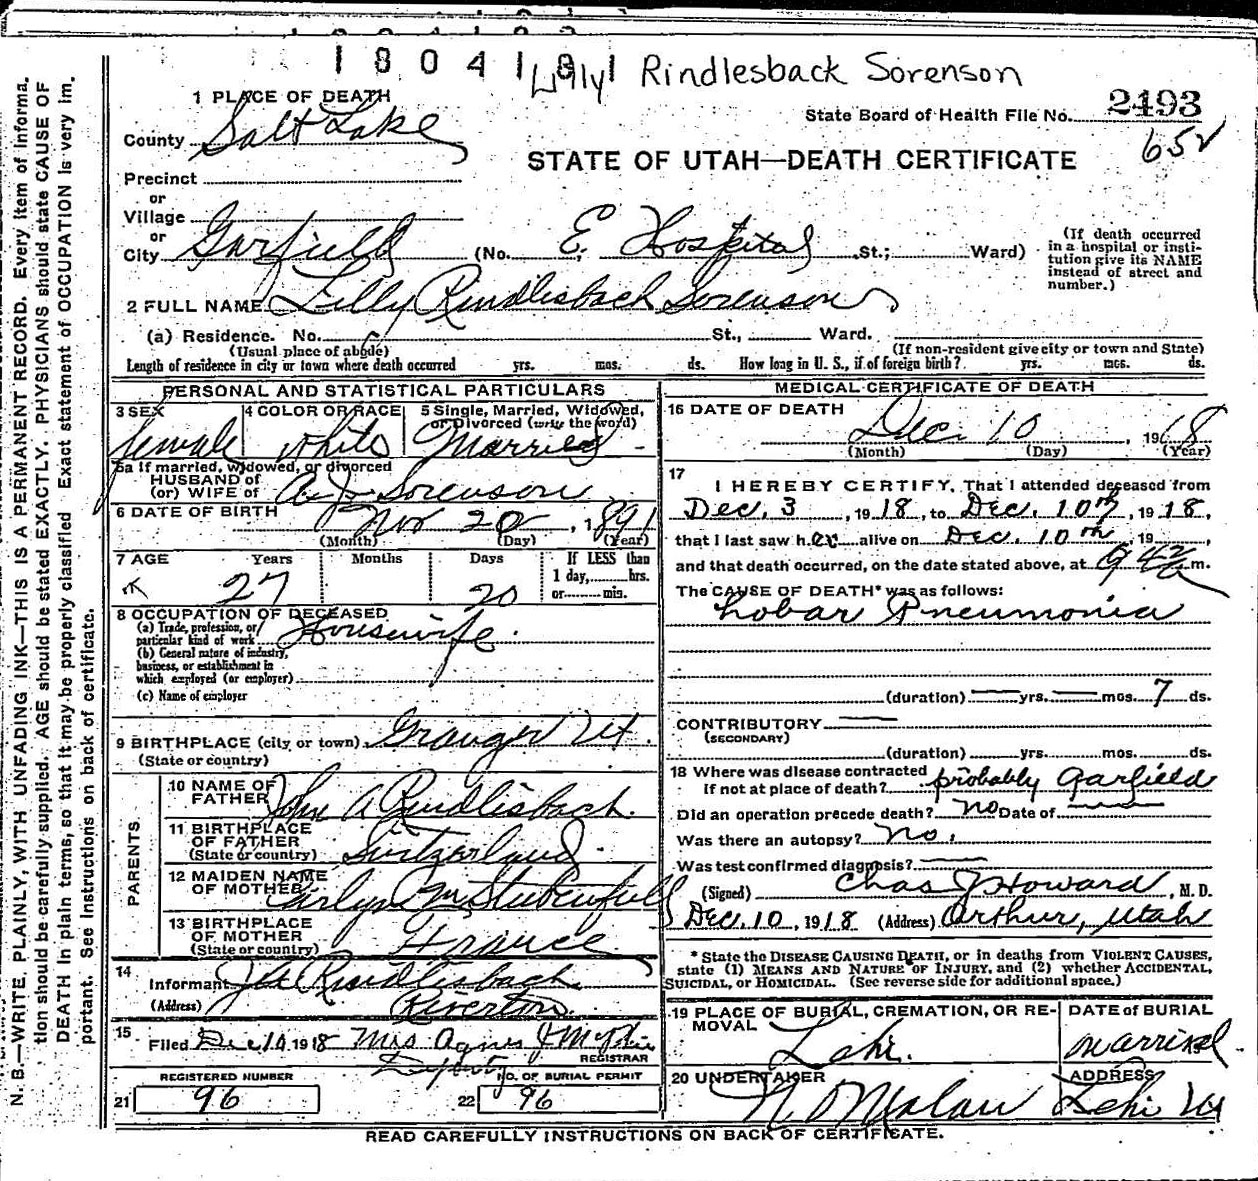 1804181 Lilly Rindlesback Sorenson
1 PLACE OF DEATH
State Board of Health File No. 2493
County Salt Lake
65
STATE OF UTAH—DEATH CERTIFICATE
Precinct
or
Village
or
City Garfield (No. E. Hospital St.; Ward)
(If death occurred in a hospital or insti-
tution give its NAME
instead of street and
number.)
2 FULL NAME Lilly Rindlisbach Sorenson
(a) Residence. No. St., Ward.
(Usual place of abode) (If non-resident give city or town and State)
Length of residence in city or town where death occurred yrs. mos. ds. How long in U. S., if of foreign birth? yrs. mos. ds.
PERSONAL AND STATISTICAL PARTICULARS
3 SEX 4 COLOR OR RACE 5 Single, Married, Widowed,
or Divorced (write the word)
female white Married
5a If married, widowed, or divorced
HUSBAND of
(or) WIFE of A. J. Sorenson
6 DATE OF BIRTH Nov 20, 1891
(Month) (Day) (Year)
7 AGE Years Months Days If LESS than
1 day, hrs.
or min.
27 20
8 OCCUPATION OF DECEASED
(a) Trade, profession, or
particular kind of work Housewife
(b) General nature of industry,
business, or establishment in
which employed (or employer)
(c) Name of employer
9 BIRTHPLACE (city or town) Granger Ut.
(State or country)
PARENTS
10 NAME OF
FATHER John A Rindlisbach.
11 BIRTHPLACE
OF FATHER
(State or country) Switzerland
12 MAIDEN NAME
OF MOTHER
13 BIRTHPLACE
OF MOTHER
(State or country) France
14
Informant J A Rindlisbach
(Address) Riverton
15 Filed Dec 10 1918 Mrs Agnes
REGISTRAR
Deputy
REGISTERED NUMBER NO. OF BURIAL PERMIT
21 96 22 96
MEDICAL CERTIFICATE OF DEATH
16 DATE OF DEATH
Dec. 10, 1918
(Month) (Day) (Year)
17
I HEREBY CERTIFY, That I attended deceased from
Dec. 3, 1918, to Dec. 10th, 1918,
that I last saw her alive on Dec. 10th, 19 ,
and that death occurred, on the date stated above, at m.
The CAUSE OF DEATH* was as follows:
Lobar Pneumonia
(duration) yrs. mos. 7 ds.
CONTRIBUTORY
(SECONDARY)
(duration) yrs. mos. ds.
18 Where was disease contracted
If not at place of death? probably Garfield
Did an operation precede death? no Date of
Was there an autopsy? no.
Was test confirmed diagnosis?
(Signed) Chas J Howard, M. D.
Dec. 10, 1918 (Address) Arthur, Utah
* State the DISEASE CAUSING DEATH, or in deaths from VIOLENT CAUSES,
state (1) MEANS AND NATURE OF INJURY, and (2) whether ACCIDENTAL,
SUICIDAL, or HOMICIDAL. (See reverse side for additional space.)
19 PLACE OF BURIAL, CREMATION, OR RE-
MOVAL DATE of BURIAL
Lehi.
20 UNDERTAKER ADDRESS
Lehi
READ CAREFULLY INSTRUCTIONS ON BACK OF CERTIFICATE.
N. B.—WRITE PLAINLY, WITH UNFADING INK—THIS IS A PERMANENT RECORD. Every item of informa-
tion should be carefully supplied. AGE should be stated EXACTLY. PHYSICIANS should state CAUSE OF
DEATH in plain terms, so that it may be properly classified. Exact statement of OCCUPATION is very im-
portant. See Instructions on back of certificate.